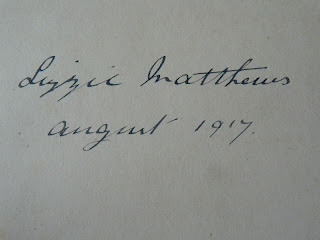 Lizzie Matthews
August 1917.